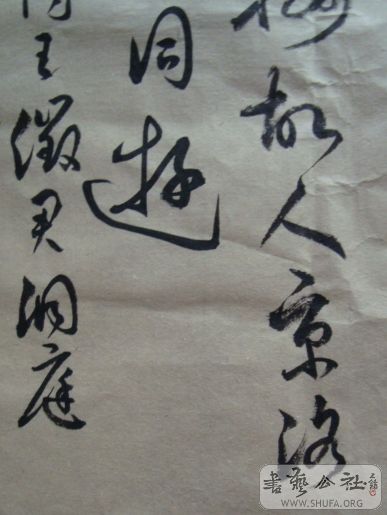 故人京洛
同遊
王徵君洞庭
書藝公社
WWW.SHUFA.ORG